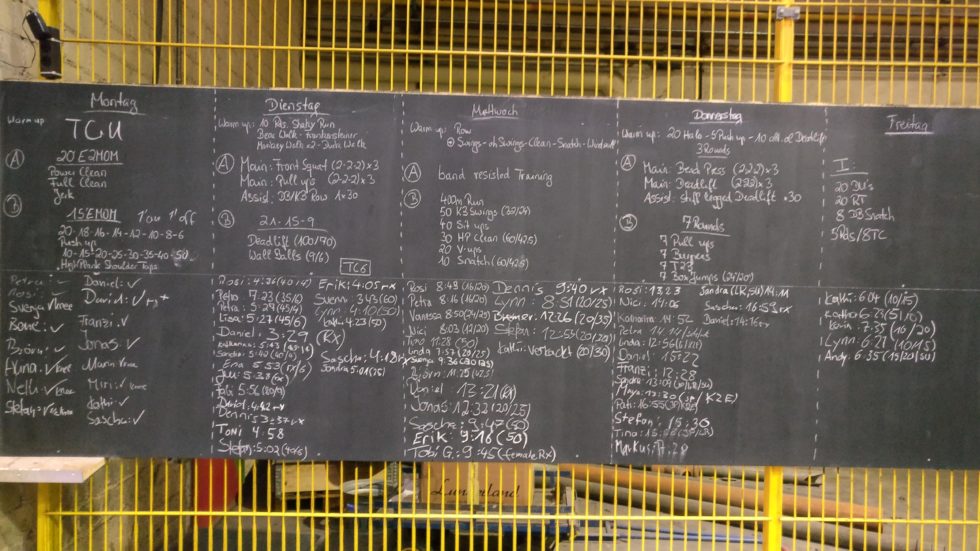 Montag
Warm up
TCU
A
20 E2MOM
Power Clean
Full Clean
Jerk
B
15 EMOM 1' on 1' off
20-18-16-14-12-10-8-6
Push ups
10-15-20-25-30-35-40-50
High Plank Shoulder Taps
Petra ✓
Rosi ✓
Svenja ✓ knee
✓
Björn: ✓
Alina: ✓ knee
Nelli: ✓ knee
Stefan: ✓
Daniel: ✓
David: ✓
Franzi: ✓
Jonas: ✓
Maria ✓ knee
Miri: ✓ knee
Kathi: ✓
Sascha: ✓
Dienstag
Warm up: 10 Rds. Shuttle Run
Bear Walk - Frankensteiner
Monkey Walk x2 - Duck Walk
A
Main: Front Squat (2-2-2) x 3
Main: Pull ups (2-2-2) x 3
Assist: DB/KB Row 1×30
B
21-15-9
Deadlift (100/70)
Wall Balls (9/6)
TC6
Rosi: 4:26 (40/4)
Petra 7:23 (35/6)
Petra 5:29 (45/4)
Lisa: 5:27 (45/6)
Daniel: 3:29 (RX)
Sandra: 5:42
Ena 5:53
Juli 5:38
Fabi 5:56
David: 4:42 rx
Dennis 3:37 rx
Toni 4:58
Stefan: 5:02
Erik: 4:05 rx
Svenn 3:43 (60)
Lynn: 4:10 (50)
4:23 (50)
Sascha: 4:12 rx
Sandra 5:01
Mittwoch
Warm up: Row
Swings - oh Swings - Clean - Snatch - Windmill
A
band resisted Training
B
400m Run
50 KB Swings (32/24)
40 Sit ups
30 HP Clean (60/42,5)
20 V-ups
10 Snatch (60/42,5)
Rosi 8:48 (16/20)
Petra 8:16 (16/20)
Vanessa 8:50 (24/25)
Nici 8:03 (12/20)
Tino 11:28 (50)
Linda 7:57 (20/25)
Svenja 9:36
Björn: 11:25 (42,5)
Daniel: 13:21
Jonas: 12:32 (20/25)
Sascha: 9:47 (50)
Erik: 9:16 (50)
Tobi G.: 9:45 (female, Rx)
Dennis 9:40 rx
Lynn: 8:51 (20/25)
12:26 (20/35)
Stefan: 12:55 (20/20)
Kathi: verkackt (20/30)
Donnerstag
Warm up: 20 Halo - 5 Push up - 10 alt. al Deadlift
3 Rounds
A
Main: Bead Press (2-2-2) x 3
Main: Deadlift (2-2-2) x 3
Assist: stiff legged Deadlift x 30
B
7 Rounds
7 Pull ups
7 Burpees
7 T2B
7 Box Jumps (24/20)
Rosi: 13:23
Nici: 14:06
Katharina 14:52
Petra 14:14
Linda: 12:56
Daniel 15:22
Franzi: 12:28
Sandra 13:09
Maya: 12:30 (JP/K2E)
Pati: 16:55 (JP/K2E)
Stefan: 15:30
Tina: 15:55
Markus: 17:28
Sandra 14:11
Sascha: 16:53 rx
Daniel: 14:16
Freitag
I:
20 DU's
20 RT
8 DB Snatch
5 Rds / 8 TC
Kathi: 6:04 (10/15)
6:23 (5/10)
7:35 (10/20)
Lynn: 6:21 (10/15)
Andy: 6:35 (15/20/SU)